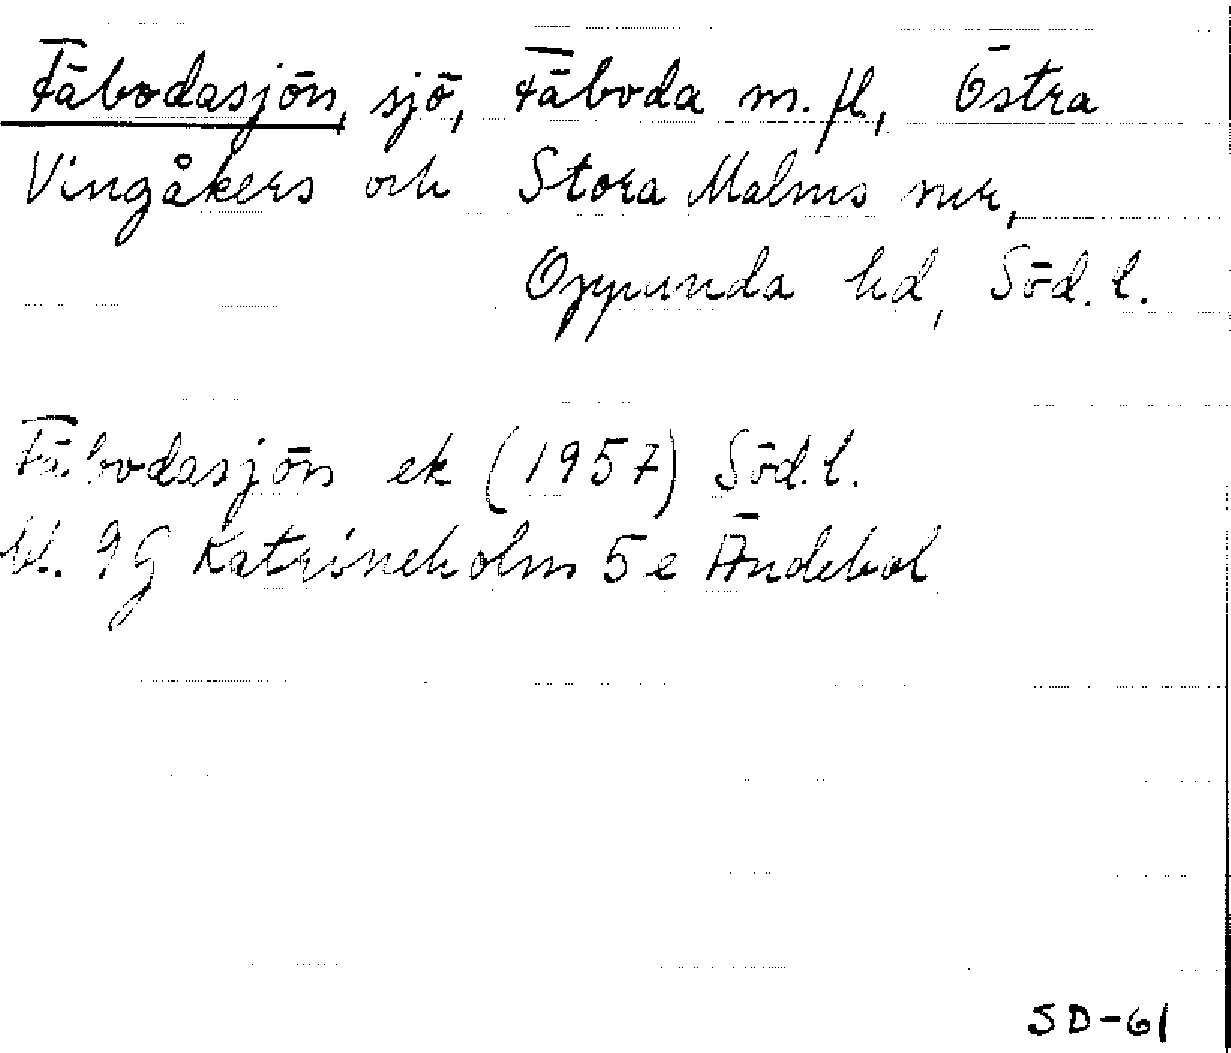 Fäbodasjön, sjö, Fäboda m. fl., Östra
Vingåkers och Stora Malms snr,
Oppunda hd, Söd. l.
Fäbodasjön ek (1957) Söd. l.
bl. 9G Katrineholm 5e Ändebol
SD-61